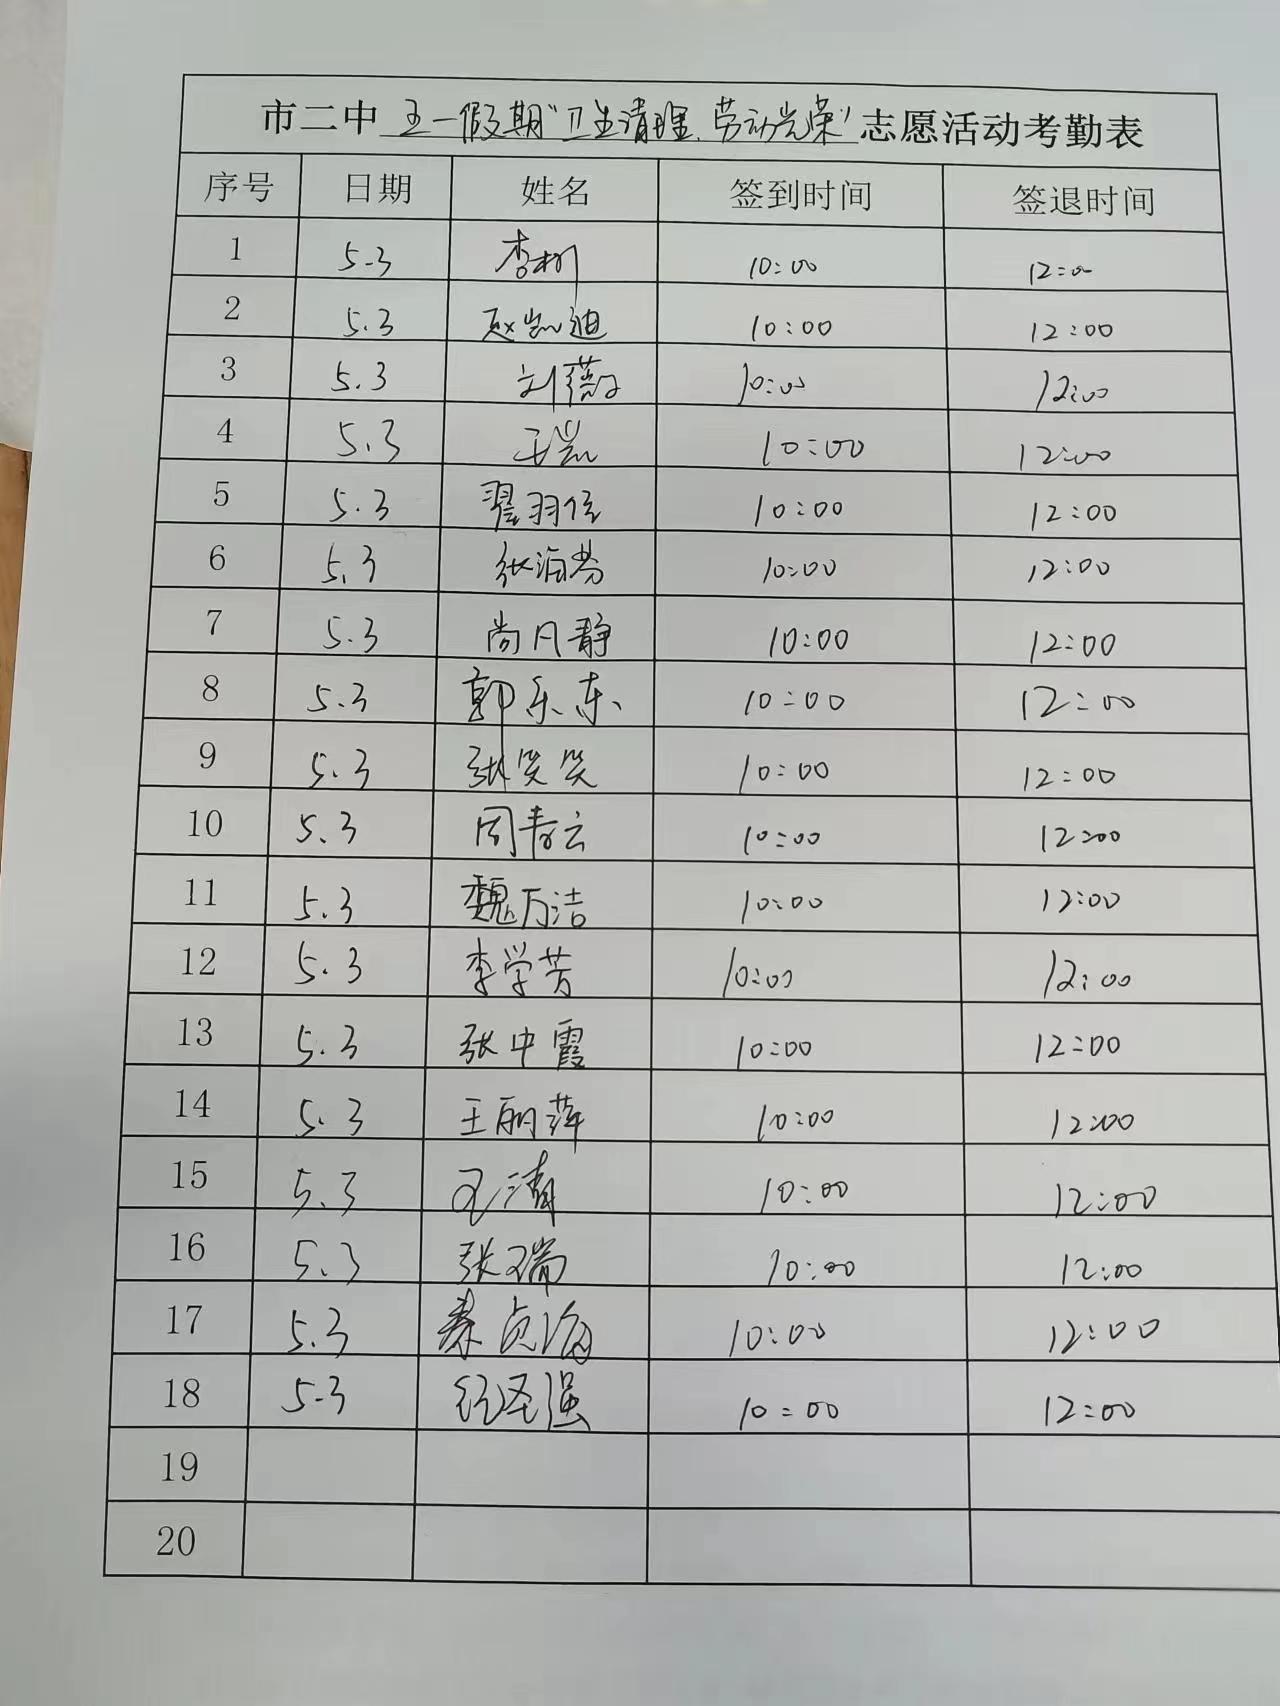 市二中五一假期“卫生清理、劳动光荣”志愿活动考勤表
序号 日期 姓名 签到时间 签退时间
1 5.3 李树 10:00 12:00
2 5.3 赵凯迪 10:00 12:00
3 5.3 刘 10:00 12:00
4 5.3 王凯 10:00 12:00
5 5.3 翟羽佳 10:00 12:00
6 5.3 张 10:00 12:00
7 5.3 尚凡静 10:00 12:00
8 5.3 郭乐东 10:00 12:00
9 5.3 张笑笑 10:00 12:00
10 5.3 周青云 10:00 12:00
11 5.3 魏万洁 10:00 12:00
12 5.3 李学芳 10:00 12:00
13 5.3 张中霞 10:00 12:00
14 5.3 王丽萍 10:00 12:00
15 5.3 孔清 10:00 12:00
16 5.3 张瑞 10:00 12:00
17 5.3 秦贞海 10:00 12:00
18 5.3 经圣强 10:00 12:00
19
20